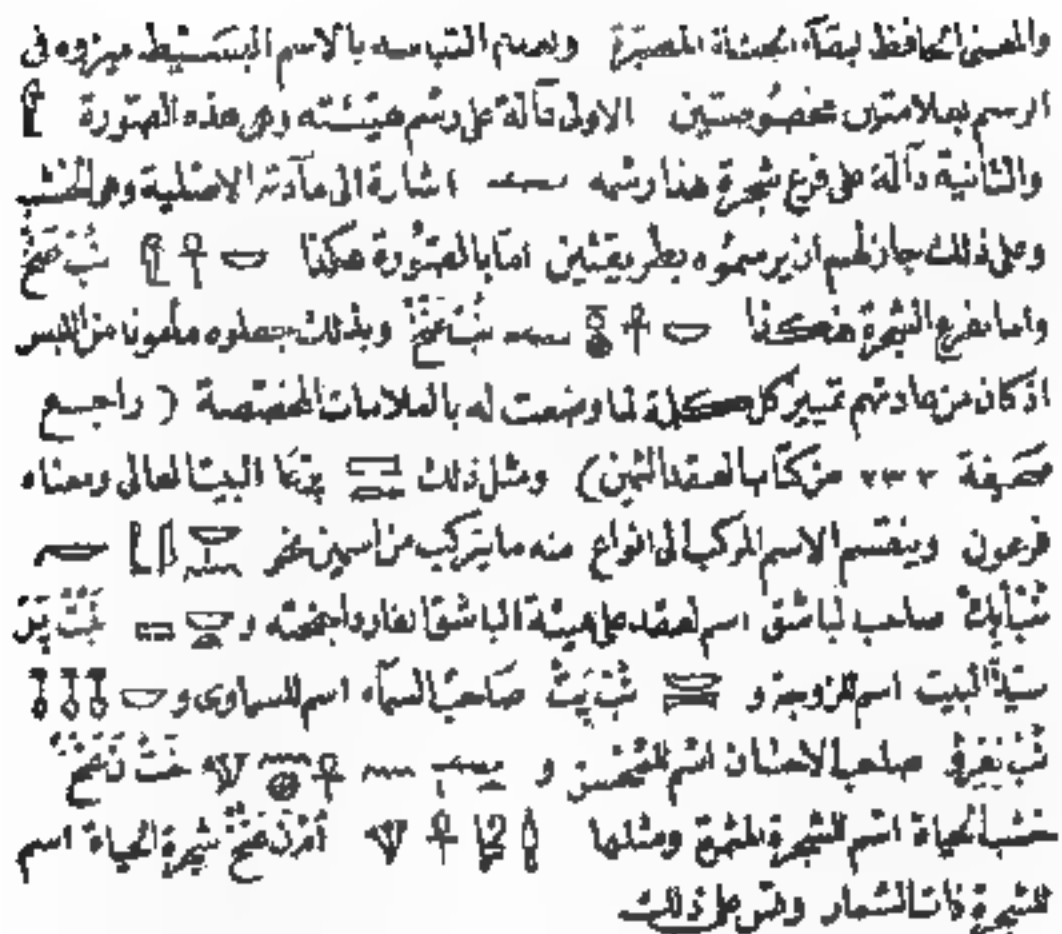 والمعنى الحافظ لبقآء الجثاة المصبرة ولعدم التباسه بالاسم البسيط ميزوه فى
الرسم بعلامتين مخصوصتين الاولى دآلة على رسم هيئته وهى هذه الصورة 𓀾
والثانية دآلة على فرع شجرة هذا رسمه 𓆱 اشارة الى مآدته الاصلية وهى الخشب
وعلى ذلك جاز لهم ان يرسموه بطريقتين اما بالصورة هكذا 𓎟 𓋹 𓀾 نب عنخ
واما بفرع الشجرة هكذا 𓎟 𓋹 𓆱 نب عنخ وبذلك جعلوه مأمونا من اللبس
اذ كان من عادتهم تمييز كل كلمة لما وضعت له بالعلامات المختصة (راجع
صحيفة ٢٣٣ من كتاب العقد الثمين) ومثل ذلك 𓉐 𓉻 پرعا البيت العالى ومعناه
فرعون وينقسم الاسم المركب الى انواع منه ما يتركب من اسمين نحو
صاحب الباشق اسم لعقد على هيئة الباشق الفارد اجنحته و 𓎟 𓏏 𓉐 نبت پر
سيدة البيت اسم للزوجة و 𓎟 𓇯 نب پت صاحب السمآء اسم للسماوى و 𓎟 𓄤 𓄤 𓄤
نب نفرو صاحب الاحسان اسم للمحسن و 𓆱 𓈖 𓋹 𓈖 𓐍 خت ن عنخ
خشب الحياة اسم للشجرة المثمرة ومثلها 𓋹 شجرة الحياة اسم
للشجرة ذات الثمار وقس على ذلك